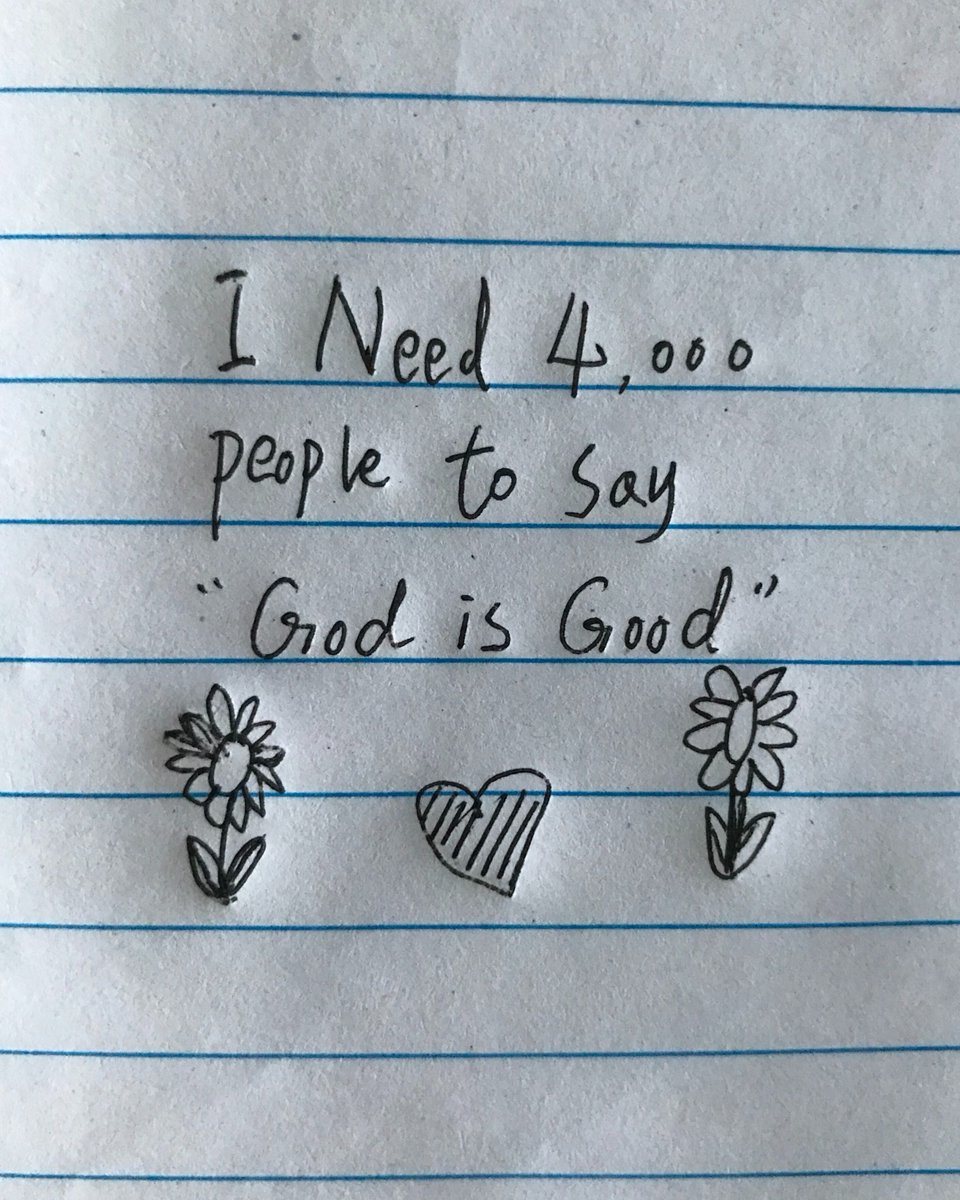 I Need 4,000
people to say
"God is Good"